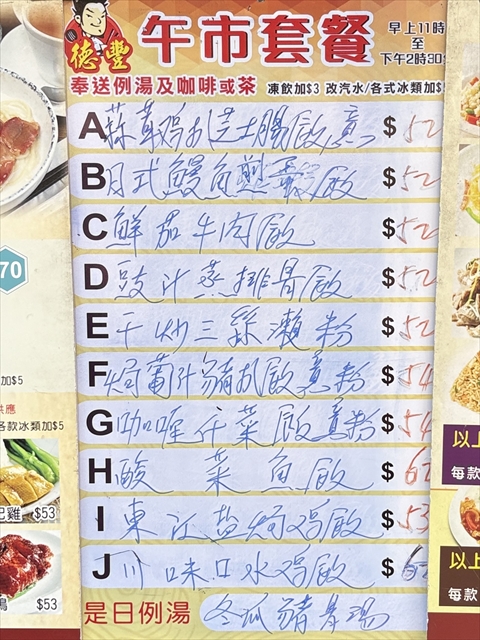 德豐
午市套餐
早上11時
至
下午2時30分
奉送例湯及咖啡或茶
凍飲加$3 改汽水/各式冰類加$
A 蒜茸鸡扒芝士腸飯/意 $52
B 日式鰻魚 飯 $52
C 鮮茄牛肉飯 $52
D 豉汁蒸排骨飯 $52
E 干炒三絲瀨粉 $52
F 焗葡汁豬扒飯/意粉 $54
G 咖喱什菜飯/意粉 $54
H 酸菜魚飯 $62
I 東江盐焗鸡飯 $53
J 川味口水鸡飯 $62
是日例湯 冬瓜豬骨湯
70
加$5
供應
各款冰類加$5
雞 $53
$53
以上
每款
以上
每款